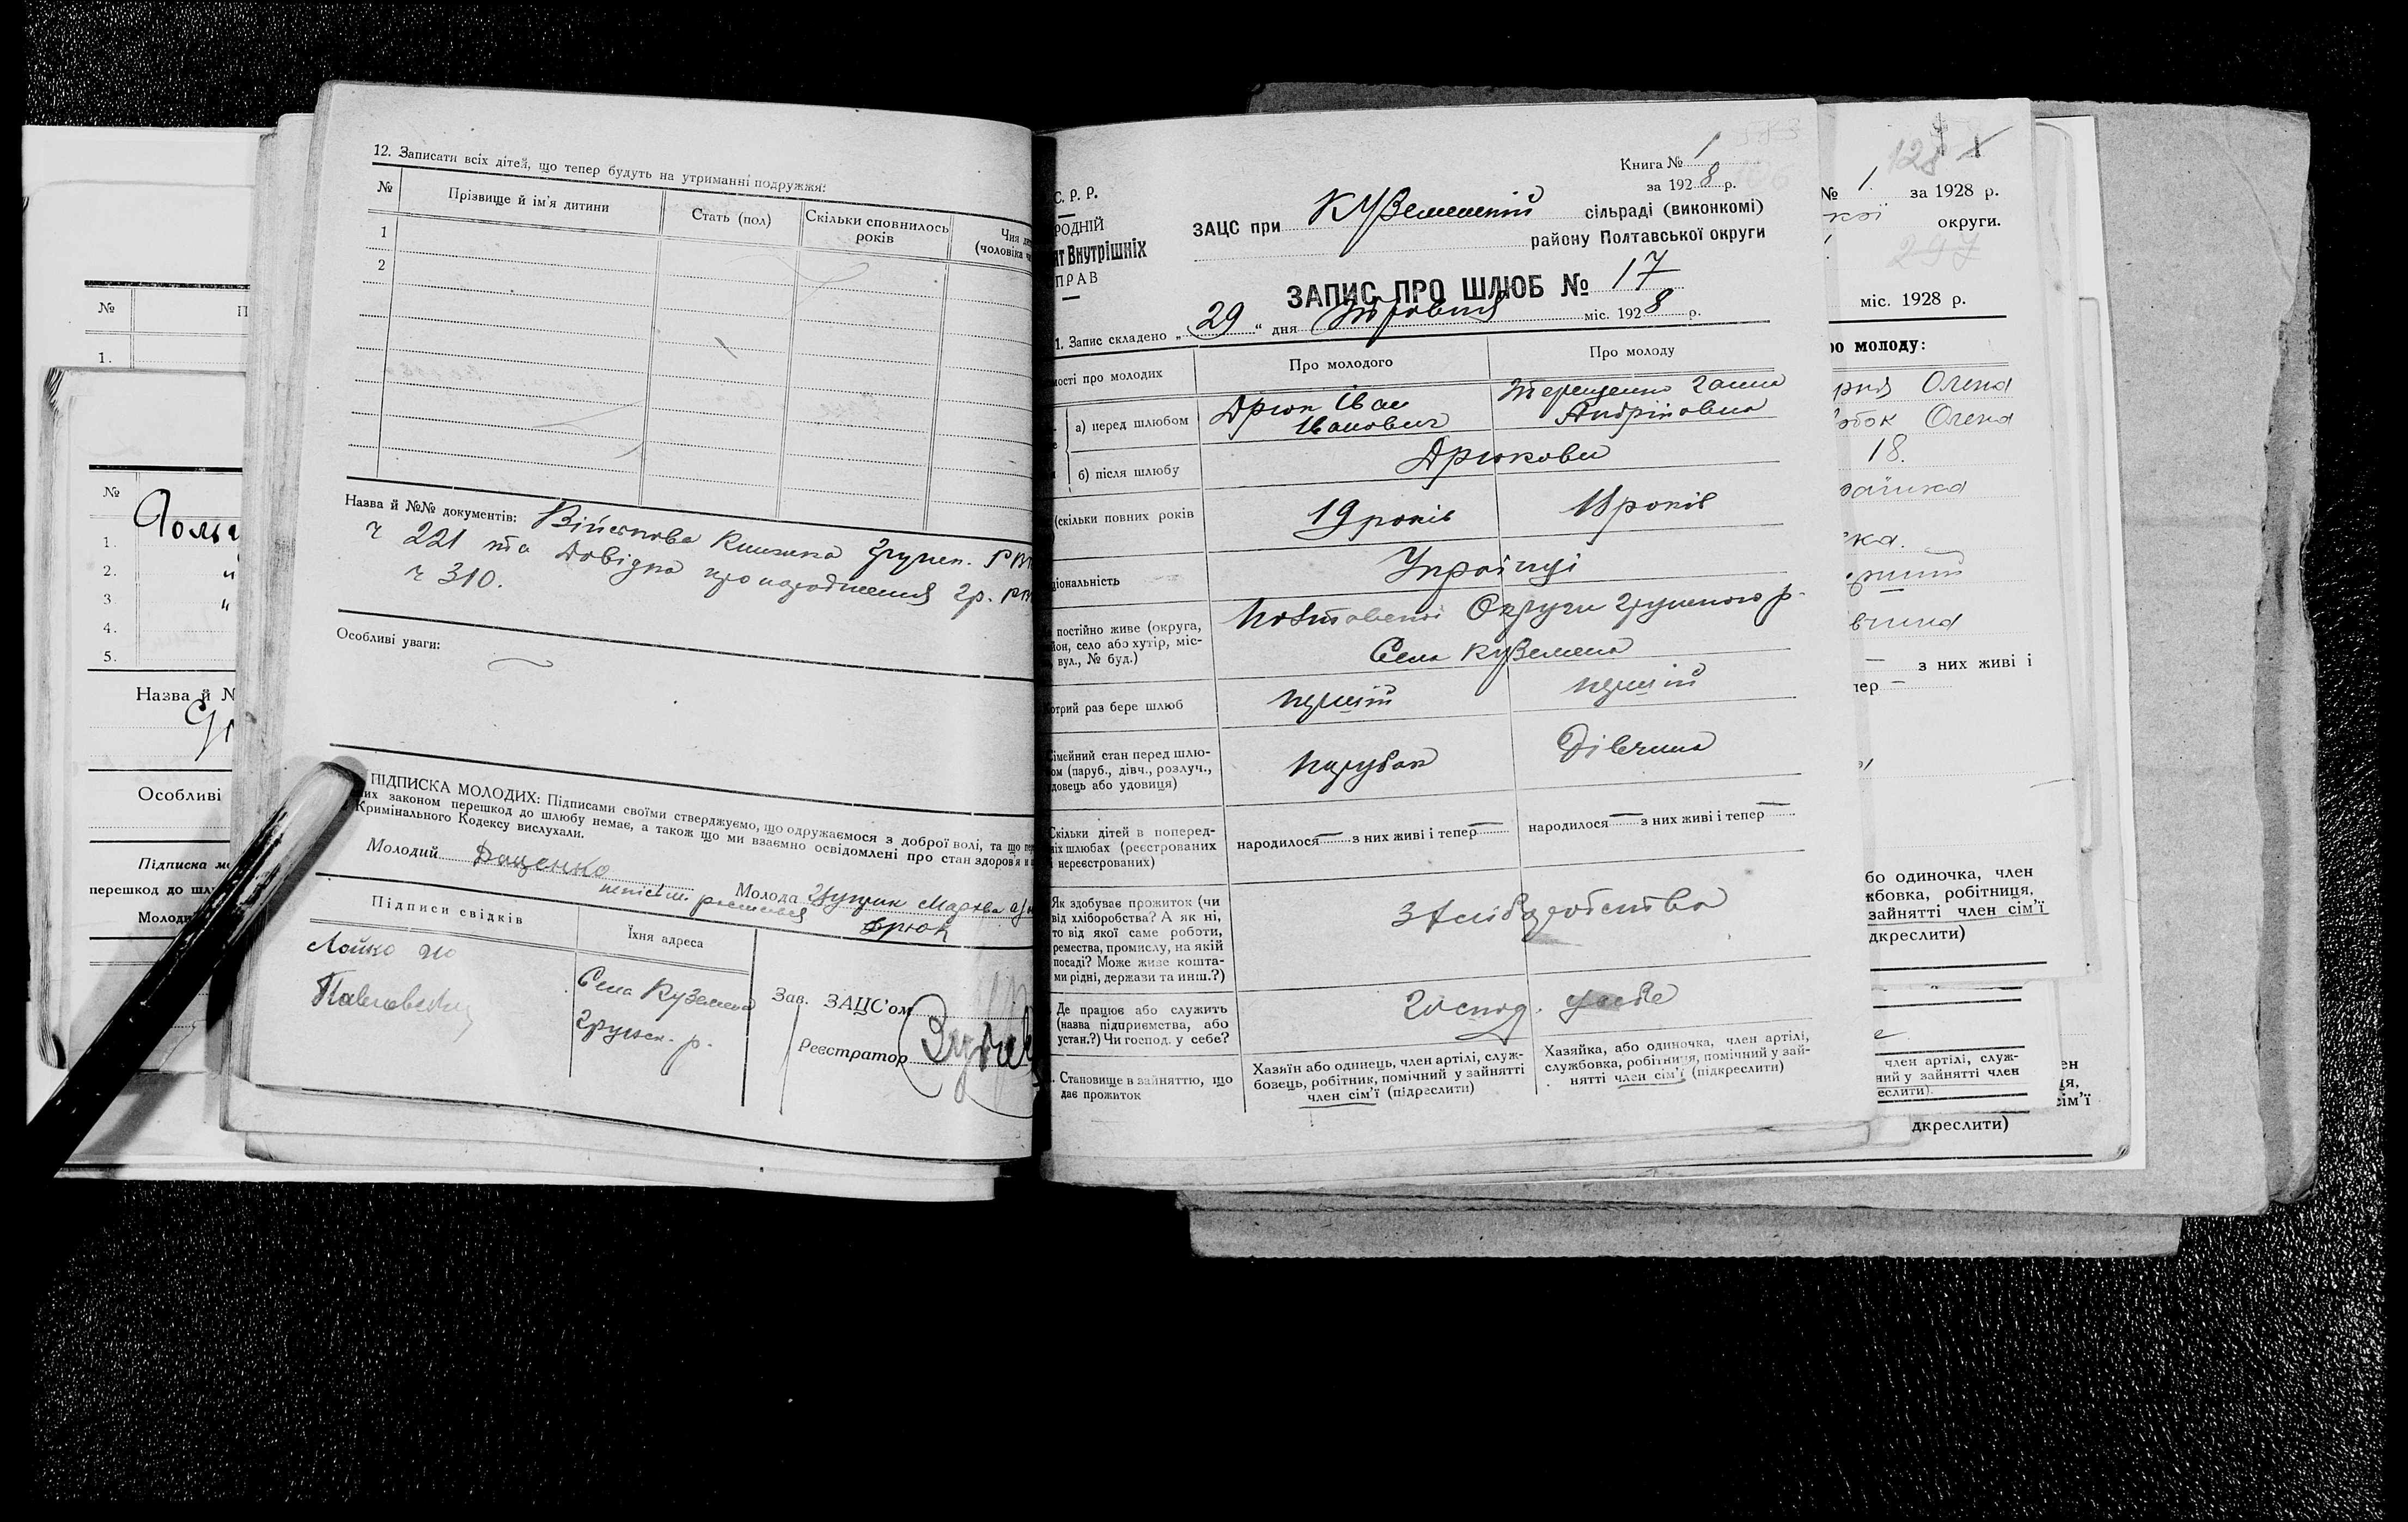 №
П
1.
№
Польс
1.
2. "
3. "
4.
5.
Назва й №
Особливі
Підписка мо
перешкод до шлю
Молоди
12. Записати всіх дітей, що тепер будуть на утриманні подружжя:
№ Прізвище й ім'я дитини Стать (пол) Скільки сповнилось років Чия дит (чоловіка чи
1
2
Назва й №№ документів: Військова Книжка Грунск. РВ
ч 221 та Довідка про народження Гр. РВ
ч 310.
Особливі уваги:
ПІДПИСКА МОЛОДИХ: Підписами своїми стверджуємо, що одружаємося з доброї волі, та що пере
них законом перешкод до шлюбу немає, а також що ми взаємно освідомлені про стан здоров'я и
Кримінального Кодексу вислухали.
Молодий Даценко Молода
Дрюк
Підписи свідків Їхня адреса
Лойко
Павловский
Села Куземена
Грунск. р.
Зав. ЗАЦС'ом
Реєстратор
С. Р. Р.
РОДНІЙ
ат Внутрішніх
ПРАВ
Книга № 1
за 1928 р.
ЗАЦС при Куземенській сільраді (виконкомі)
району Полтавської округи
ЗАПИС ПРО ШЛЮБ № 17
1. Запис складено „29“ дня Травня міс. 1928 р.
мості про молодих Про молодого Про молоду
а) перед шлюбом Дрюк Іван Іванович Терещенко Ганна Андріївна
б) після шлюбу Дрюкови
(скільки повних років 19 років 18 років
ціональність Українці
постійно живе (округа,
йон, село або хутір, міс-
вул., № буд.)
Полтавської Округи Грунського р.
Села Куземена
отрий раз бере шлюб перший перший
імейний стан перед шлю-
ом (паруб., дівч., розлуч.,
довець або удовиця)
парубок Дівчина
Скільки дітей в поперед-
ніх шлюбах (реєстрованих
і нереєстрованих)
народилося — з них живі і тепер — народилося — з них живі і тепер —
Як здобуває прожиток (чи
від хліборобства? А як ні,
то від якої саме роботи,
ремества, промислу, на якій
посаді? Може живе кошта-
ми рідні, держави та инш.?)
З хліборобства
Де працює або служить
(назва підприємства, або
устан.?) Чи господ. у себе?
Господ. у себе
Становище в зайняттю, що
дає прожиток
Хазяїн або одинець, член артілі, служ-
бовець, робітник, помічний у зайнятті
член сім'ї (підреслити)
Хазяйка, або одиночка, член артілі,
службовка, робітниця, помічний у зай-
нятті член сім'ї (підкреслити)
128
№ 1. за 1928 р.
кої округи.
297
міс. 1928 р.
ро молоду:
Олена
Олена
18.
з них живі і
пер —
бо одиночка, член
жбовка, робітниця,
зайнятті член сім'ї
дкреслити)
член артілі, служ-
ний у зайнятті член
еслити).
ен
ія,
сім'ї
дкреслити)